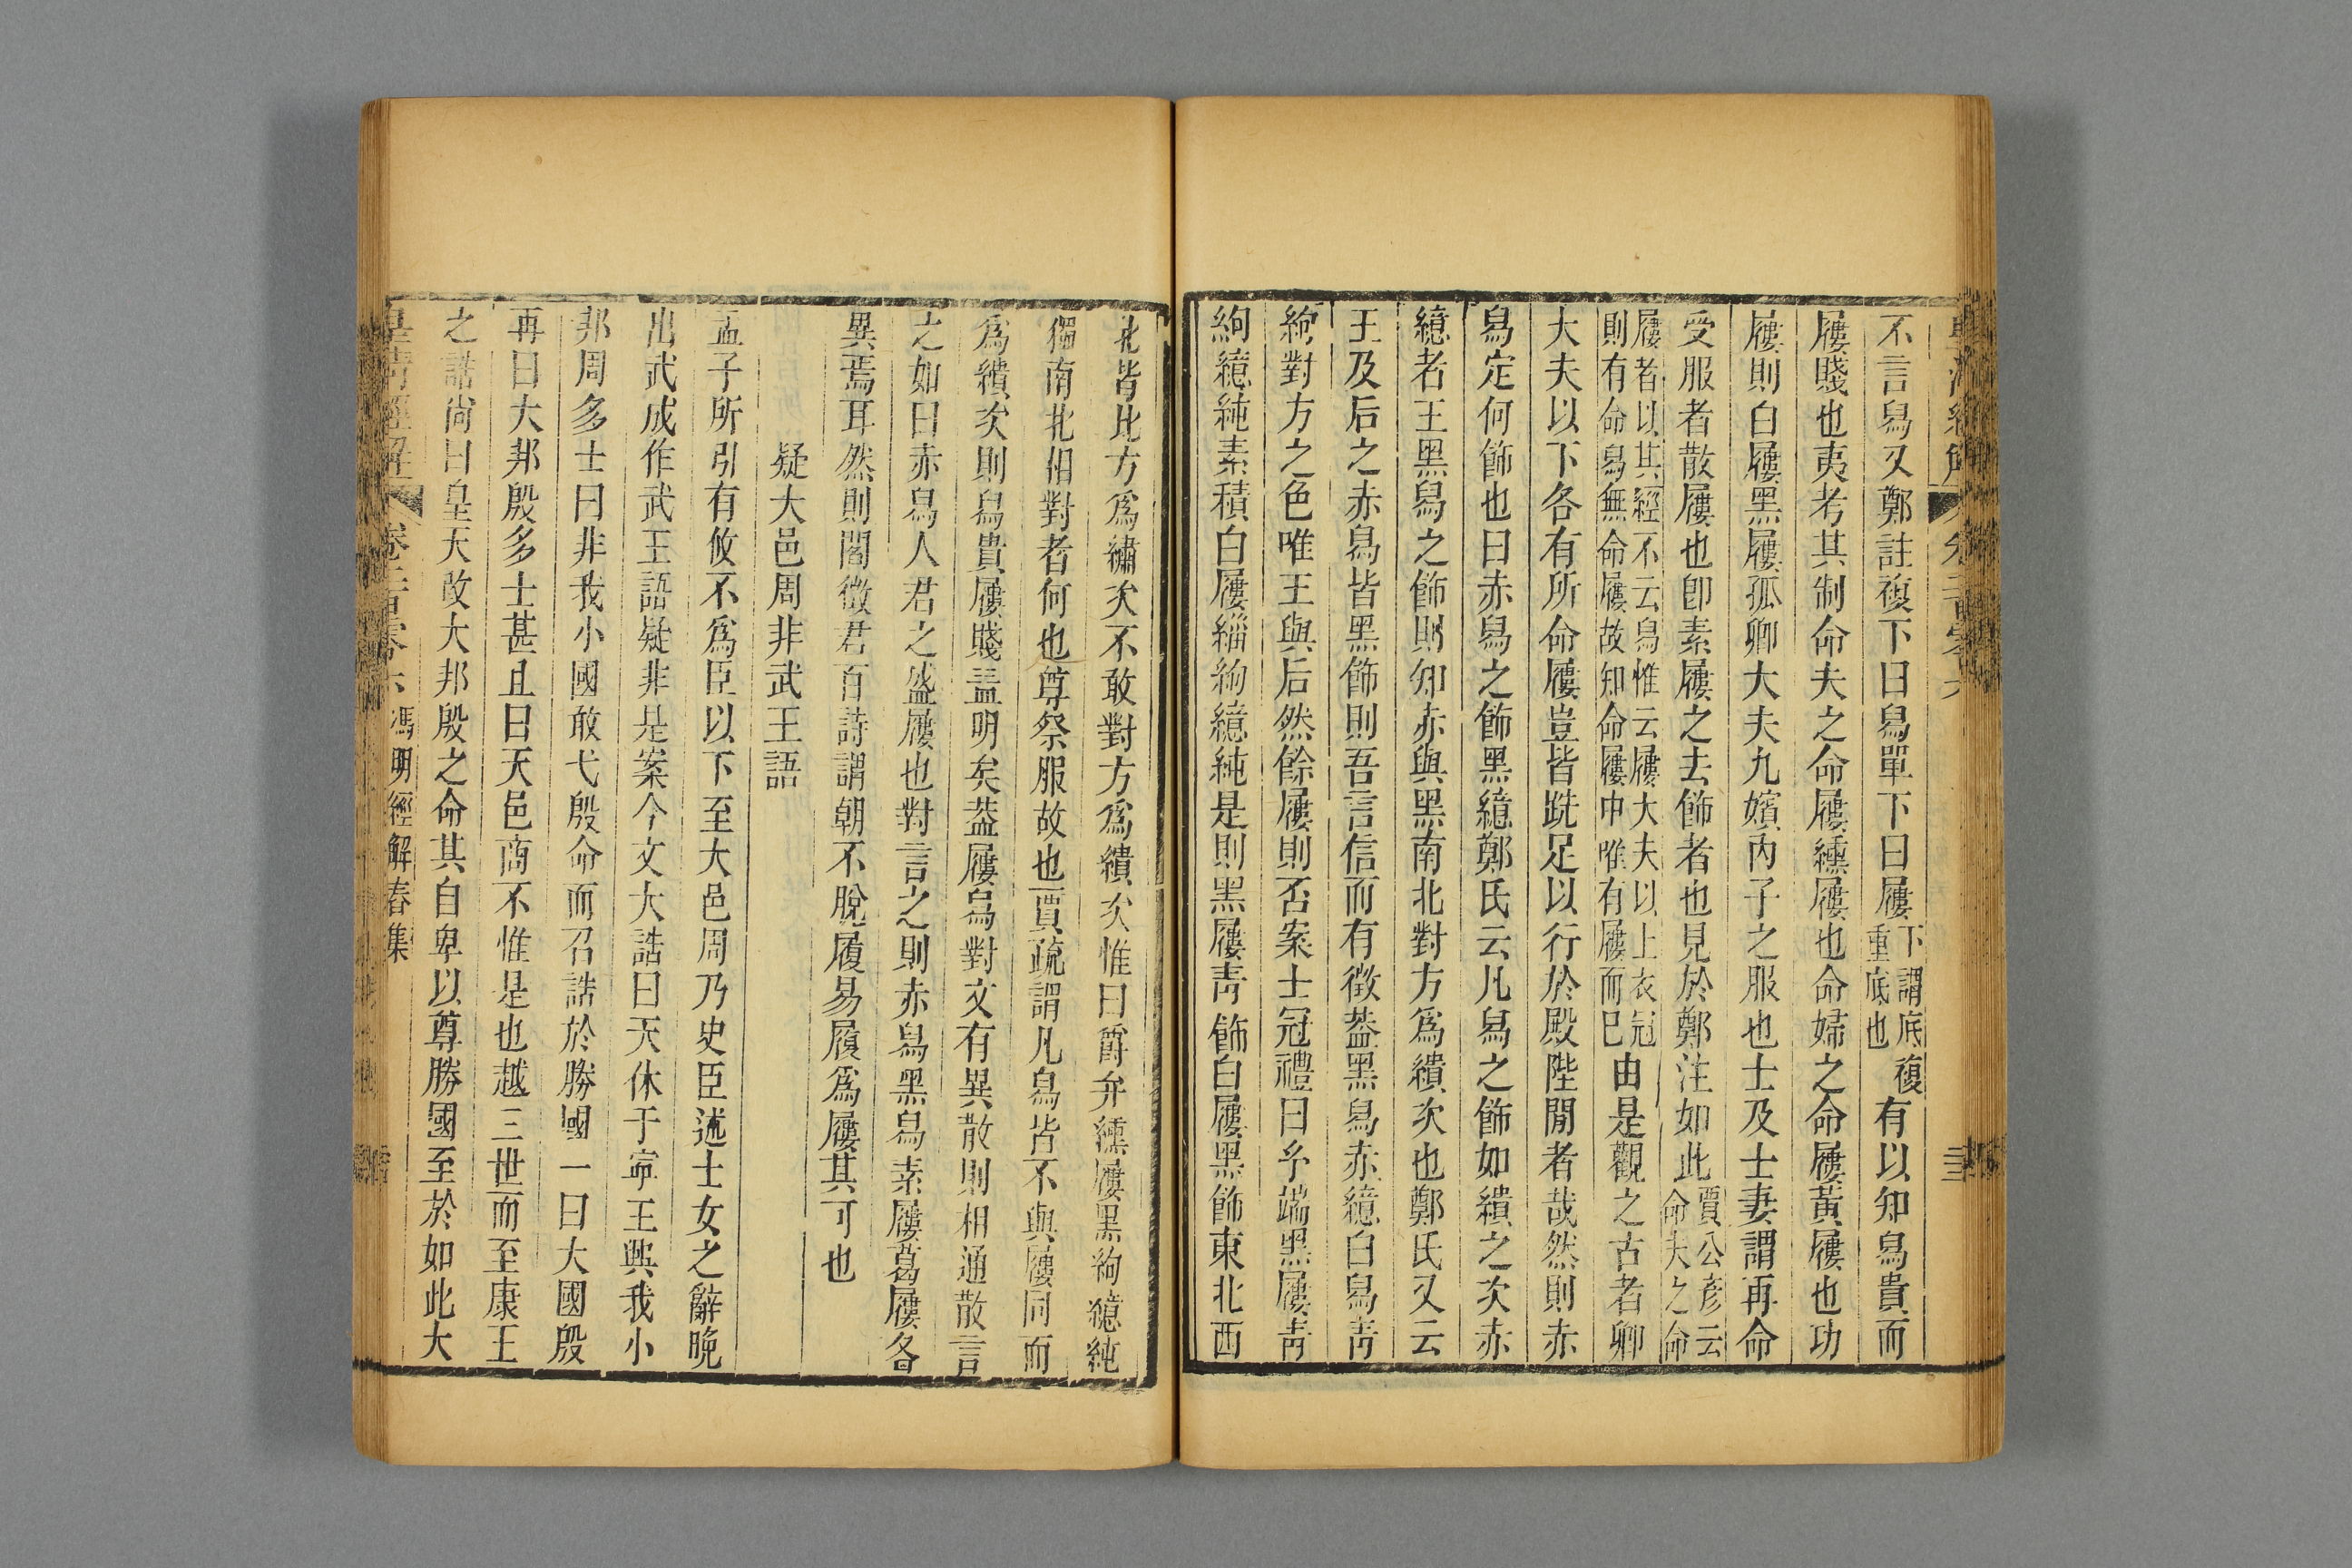 皇清經解 卷二百零六
不言舄又鄭註複下曰舄單下曰屨下謂底複重底也有以知舄貴而
屨賤也夷考其制命夫之命屨纁屨也命婦之命屨黃屨也功
屨則白屨黑屨孤卿大夫九嬪內子之服也士及士妻謂再命
受服者散屨也卽素屨之去飾者也見於鄭注如此賈公彥云命夫之命
屨者以其經不云舄惟云屨大夫以上衣冠則有命舄無命屨故知命屨中唯有屨而巳由是觀之古者卿
大夫以下各有所命屨豈皆跣足以行於殿陛閒者哉然則赤
舄定何飾也曰赤舄之飾黑繶鄭氏云凡舄之飾如繢之次赤
繶者王黑舄之飾則知赤與黑南北對方爲繢次也鄭氏又云
王及后之赤舄皆黑飾則吾言信而有徵葢黑舄赤繶白舄靑
絇對方之色唯王與后然餘屨則否案士冠禮曰予端黑屨靑
絇繶純素積白屨緇絇繶純是則黑屨靑飾白屨黑飾東北西
北皆比方爲繡次不敢對方爲繢次惟曰爵弁纁屨黑絇繶純
獨南北相對者何也尊祭服故也賈疏謂凡舄皆不與屨同而
爲繢次則舄貴屨賤益明矣葢屨舄對文有異散則相通散言
之如曰赤舄人君之盛屨也對言之則赤舄黑舄素屨葛屨各
異焉耳然則閻徵君百詩謂朝不脫履易履爲屨其可也
疑大邑周非武王語
孟子所引有攸不爲臣以下至大邑周乃史臣述士女之辭晚
出武成作武王語疑非是案今文大誥曰天休于寧王興我小
邦周多士曰非我小國敢弋殷命而召誥於勝國一曰大國殷
再曰大邦殷多士甚且曰天邑商不惟是也越三世而至康王
之誥尙曰皇天改大邦殷之命其自卑以尊勝國至於如此大
皇清經解 卷二百零六 馮明經解春集